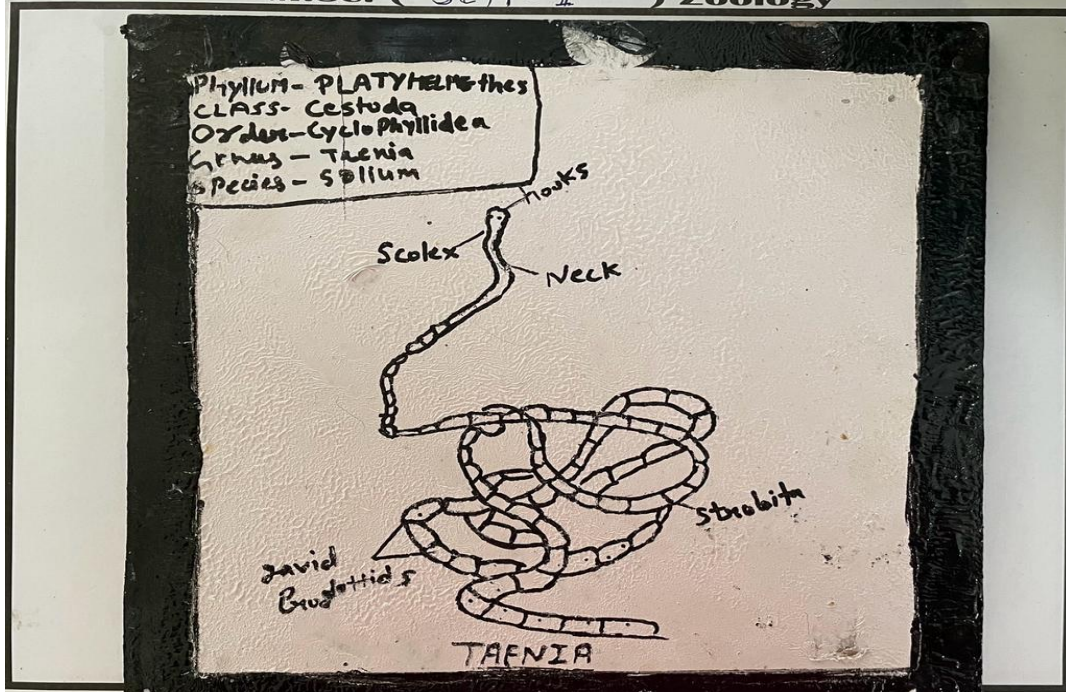 Zoology
Phyllum- PLATYHELMEthes
CLASS- Cestuda
Order- CycloPhyllidea
Genus - Taenia
Species- Solium
hooks
Scolex
Neck
Strobita
TAENIA